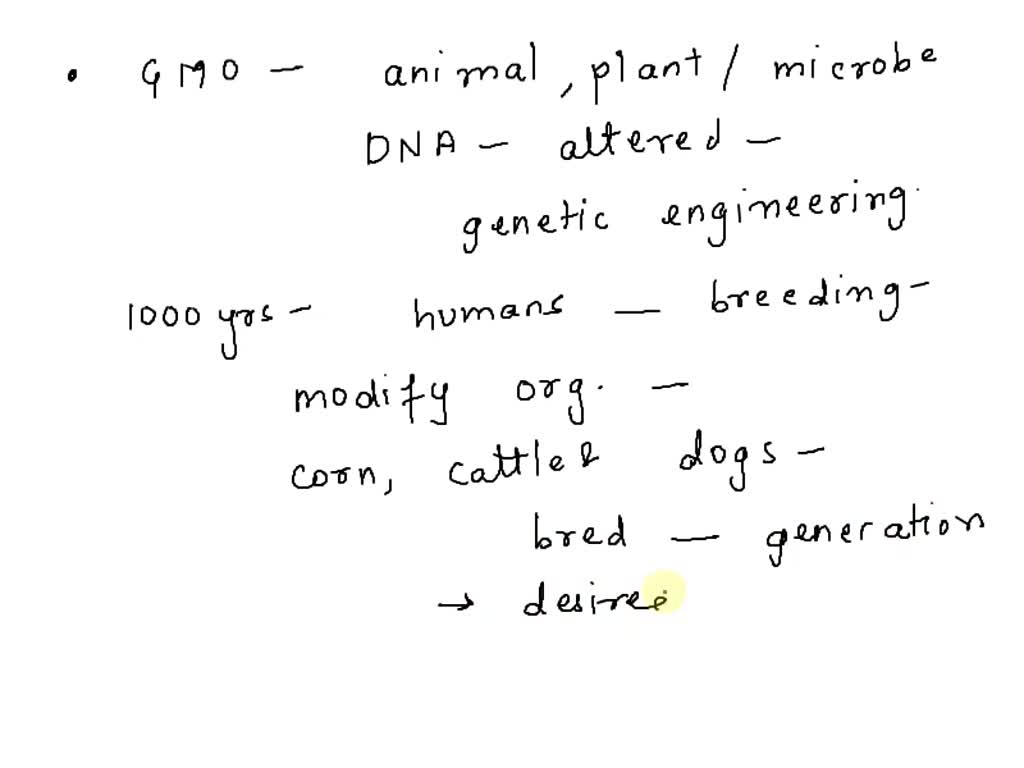 • GMO - animal, plant / microbe
DNA - altered -
genetic engineering.
1000 yrs - humans - breeding -
modify org. -
corn, cattle & dogs -
bred - generation
→ desire